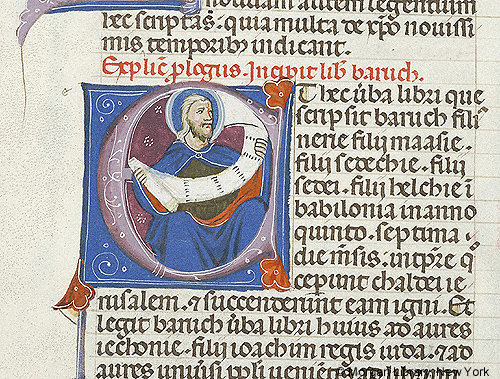 bec scriptas. quia multa de xpo nouissi
mis temporibus indicant.
Explic plogus. Incipit lib baruch.
Et hec uba libri que
scripsit baruch filij
nerie filij maasie.
filij sedechie. filij
sedei. filij helchie i
babilonia in anno
quinto. septima
die msis. in tpre q
ceperunt chaldei ie
rusalem. et succenderunt eam igni. Et
legit baruch uba libri huius ad aures
iechonie. filij ioachim regis iuda. et ad
aures uniuersi
© Morgan Library, New York